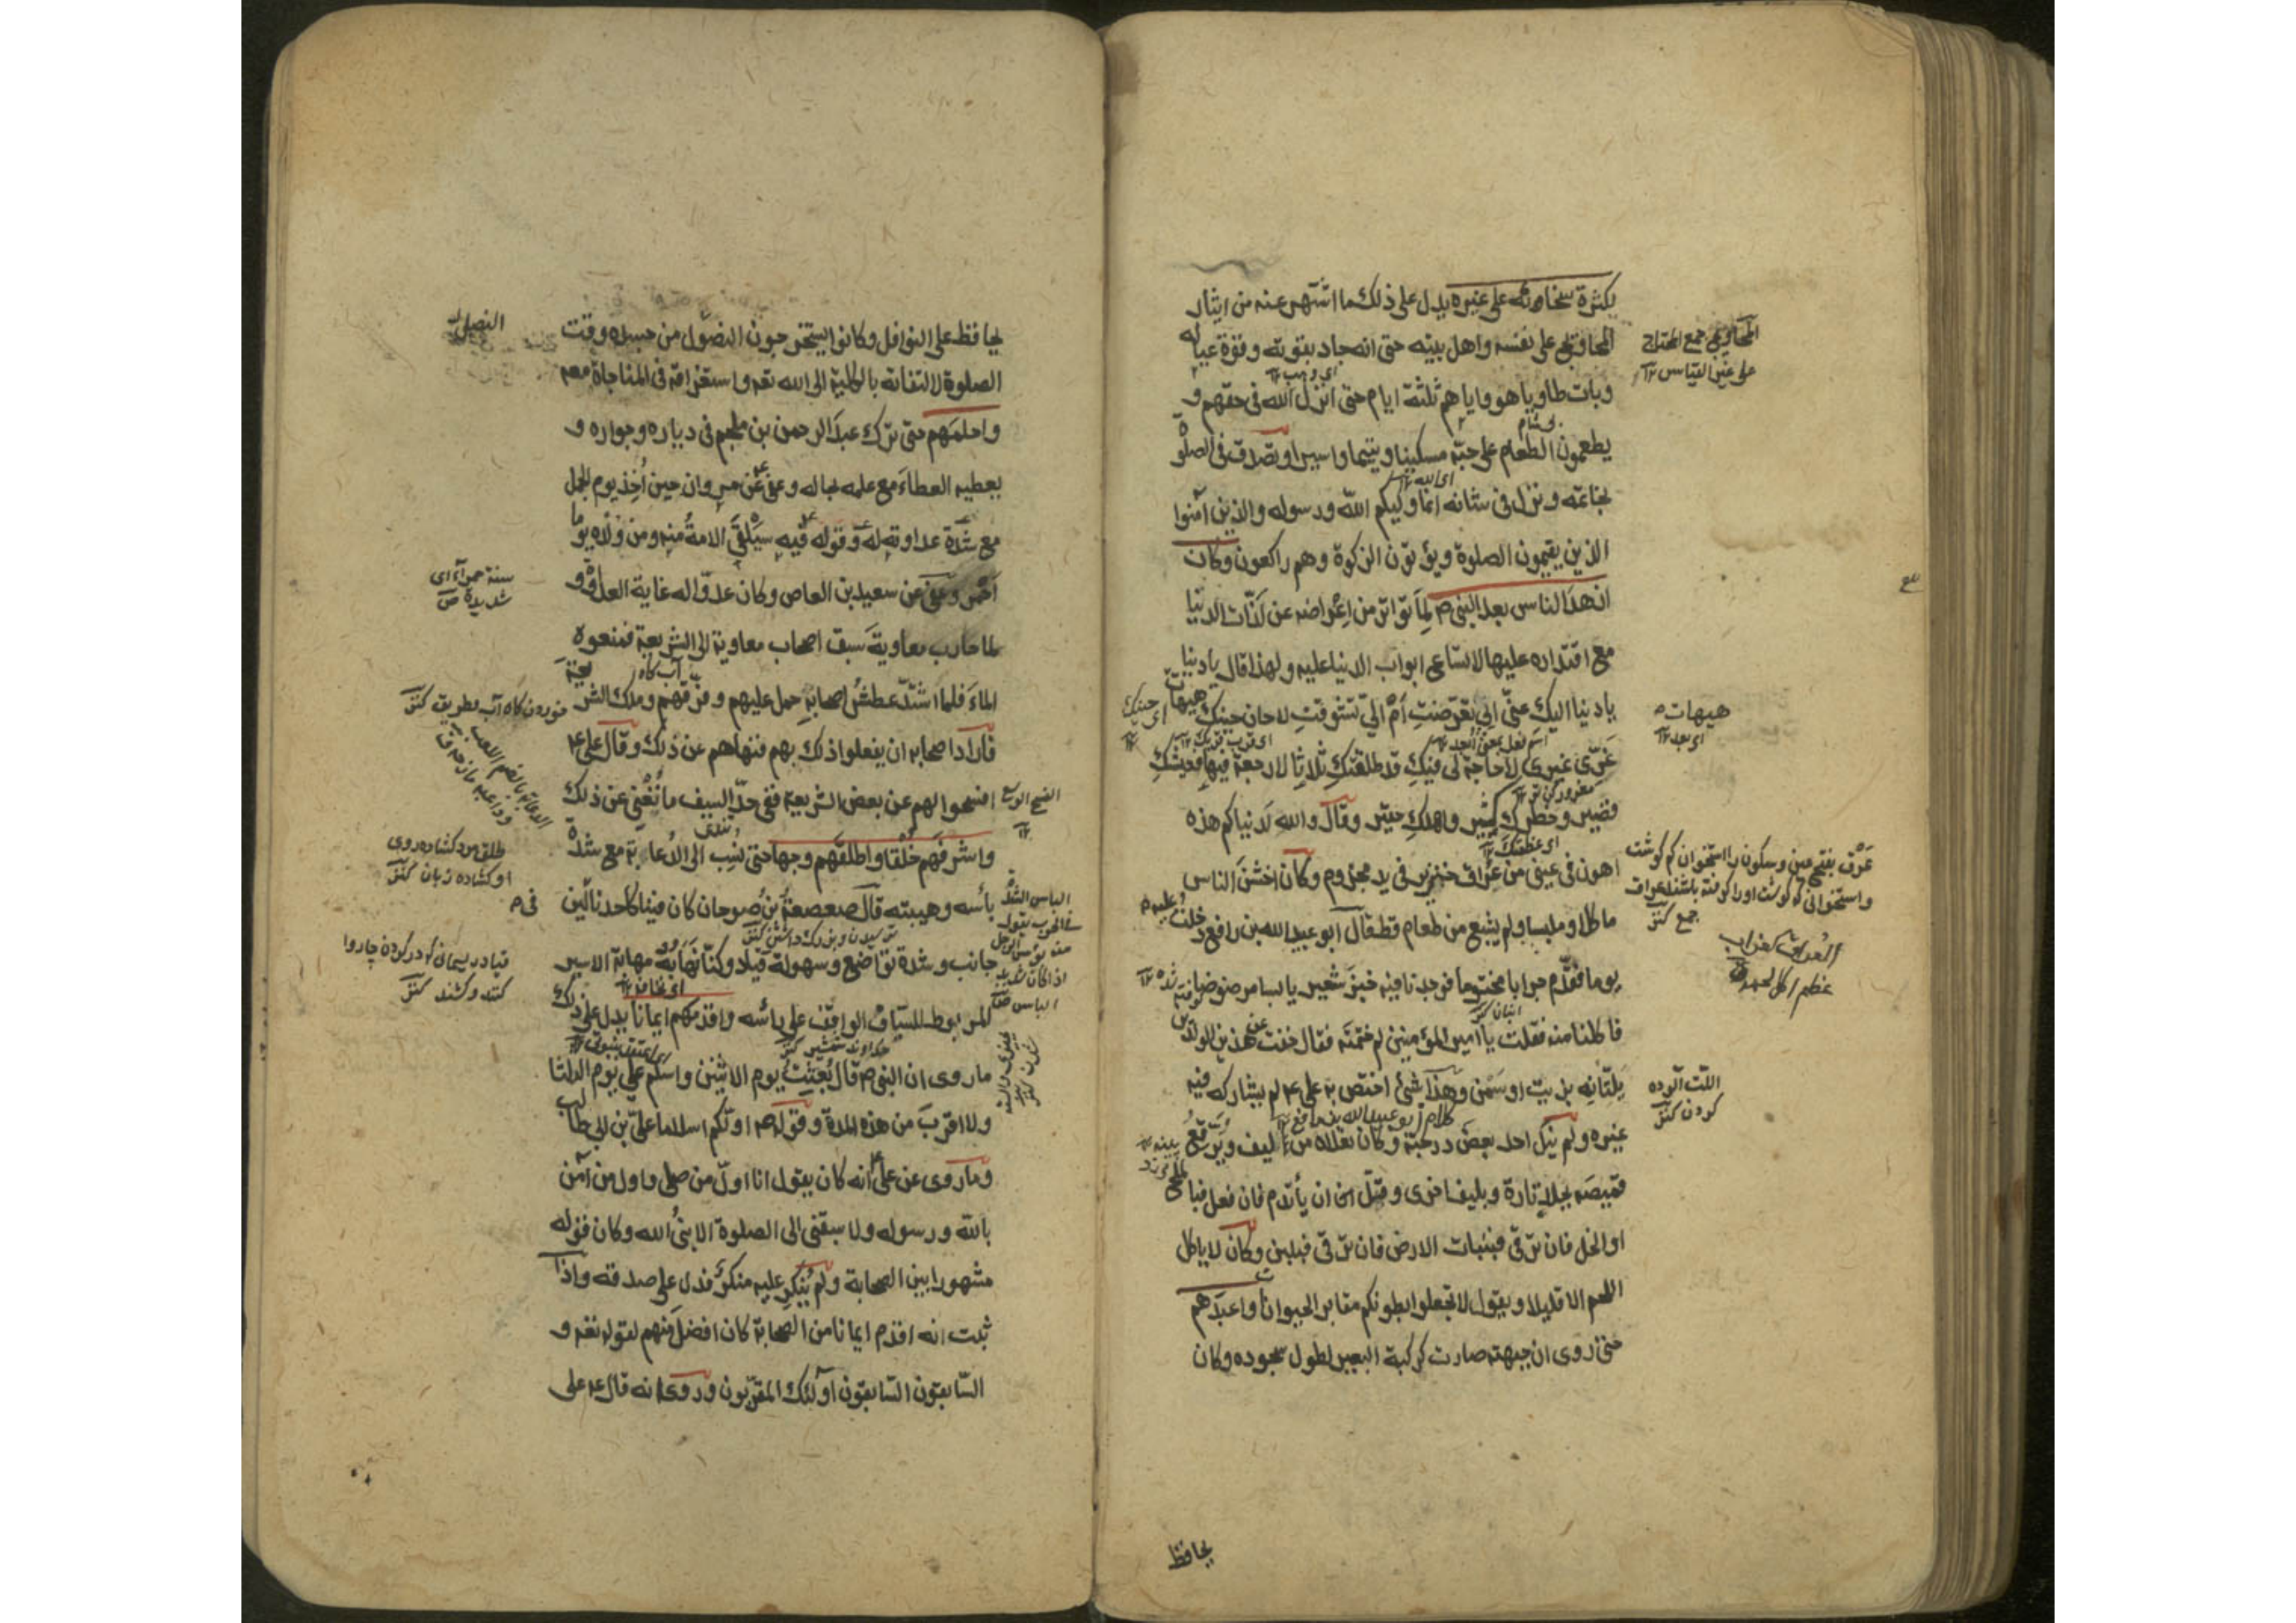 لكثرة سخاوته على غيره يدل على ذلك ما اشتهر عنه من ايثار
المحاويج على نفسه واهل بيته حتى انه جاد بقوته وقوة عياله
وبات طاويا هو واياهم ثلثة ايام حتى انزل الله فى حقهم و
يطعمون الطعام على حبه مسكينا ويتيما واسيرا وتصدق فى الصلوة
بخاتمه ونزل فى شانه انما وليكم الله ورسوله والذين آمنوا
الذين يقيمون الصلوة ويؤتون الزكوة وهم راكعون وكان
ازهد الناس بعد النبى ص لما تواتر من اعراضه عن لذّات الدنيا
مع اقتداره عليها لاتساع ابواب الدنيا عليه ولهذا قال يا دنيا
يا دنيا اليك عنّى ابى تعرّضت ام الىّ تشوقت لا حان حينك هيهات
غرّى غيرى لا حاجة لى فيك قد طلقتك ثلاثا لا رجعة فيها فعيشك
قصير وخطرك كثير واملك حقير وقال والله لدنياكم هذه
اهون فى عينى من عُراق خنزير فى يد مجذوم وكان اخشن الناس
ماكلا وملبسا ولم يشبع من طعام قط قال ابو عبيد الله بن رافع دخلت عليه
يوما فقدّم جرابا مختوما فوجدنا فيه خبز شعير يابسا مرضوضا
فاكلنا منه فقلت يا امير المؤمنين لم ختمته فقال خفت هذين الولدين
يلتّانه بزيت او سمن وهذا شئ اختص به على ع لم يشاركه فيه
غيره ولم ينل احد بعض درجته وكان نعلاه من ليف ويرقع
قميصه بجلد تارة وبليف اخرى وقلّ ان يأتدم فان فعل فبالملح
او الخل فان ترقى فبنبات الارض فان ترقى فبلبن وكان لا ياكل
اللحم الا قليلا ويقول لا تجعلوا بطونكم مقابر الحيوانات واعبدهم
حتى روى ان جبهته صارت كركبة البعير لطول سجوده وكان
المحاويج جمع المحتاج
على غير القياس ١٢
هيهات
اى بعد ١٢
عَرْق بفتح عين وسكون را استخوان كم گوشت
جمع كنز
العراق كغراب
اللت آلوده
كردن كنز
يحافظ
يحافظ على النوافل وكانوا يستخرجون النصول من جسده وقت
الصلوة لالتفاته بالكلية الى الله تعه واستغراقه فى المناجاة معه
واحلمهم حتى ترك عبد الرحمن بن ملجم فى دياره وجواره و
يعطيه العطاء مع علمه بحاله وعفى عن مروان حين أخذ يوم الجمل
مع شدة عداوته له وقوله فيه سيلقى الامة منه ومن ولده يوما
احمر وعفى عن سعيد بن العاص وكان عدوّا له غاية العداوة و
لما حارب معاوية سبق اصحاب معاوية الى الشريعة فمنعوه
الماء فلما اشتد عطش اصحابه حمل عليهم وفرقهم وملك الشريعة
فاراد اصحابه ان يفعلوا ذلك بهم فنهاهم عن ذلك وقال على ع
افسحوا لهم عن بعض الشريعة ففى حدّ السيف ما يُغنى عن ذلك
واشرفهم خُلقا واطلقهم وجها حتى نُسِب الى الدُعابة مع شدة
بأسه وهيبته قال صعصعة بن صوحان كان فينا كاحدنا لين
جانب وشدة تواضع وسهولة قياد وكنا نهابه مهابة الاسير
المربوط للسيّاف الواقف على رأسه واقدمهم ايمانا يدل على ذلك
ما روى ان النبى ص قال بُعِثت يوم الاثنين واسلم على يوم الثلثا
ولا اقرب من هذه المدة وقوله ص اولكم اسلاما على بن ابى طالب
وما روى عن على ع انه كان يقول انا اوّل من صلى واول من آمن
بالله ورسوله ولا سبقنى الى الصلوة الا نبىُ الله وكان قوله
مشهورا بين الصحابة ولم يُنكِر عليه منكرٌ فدل على صدقه واذا
ثبت انه اقدم ايمانا من الصحابة كان افضل منهم لقوله تعه و
السّابقون السّابقون اولئك المقرّبون وروى انه قال ع على
سنة حمراء اى
شديدة ص
طلق مرد كشاده روى
او كشاده زبان كنز
كنند وكشند كنز